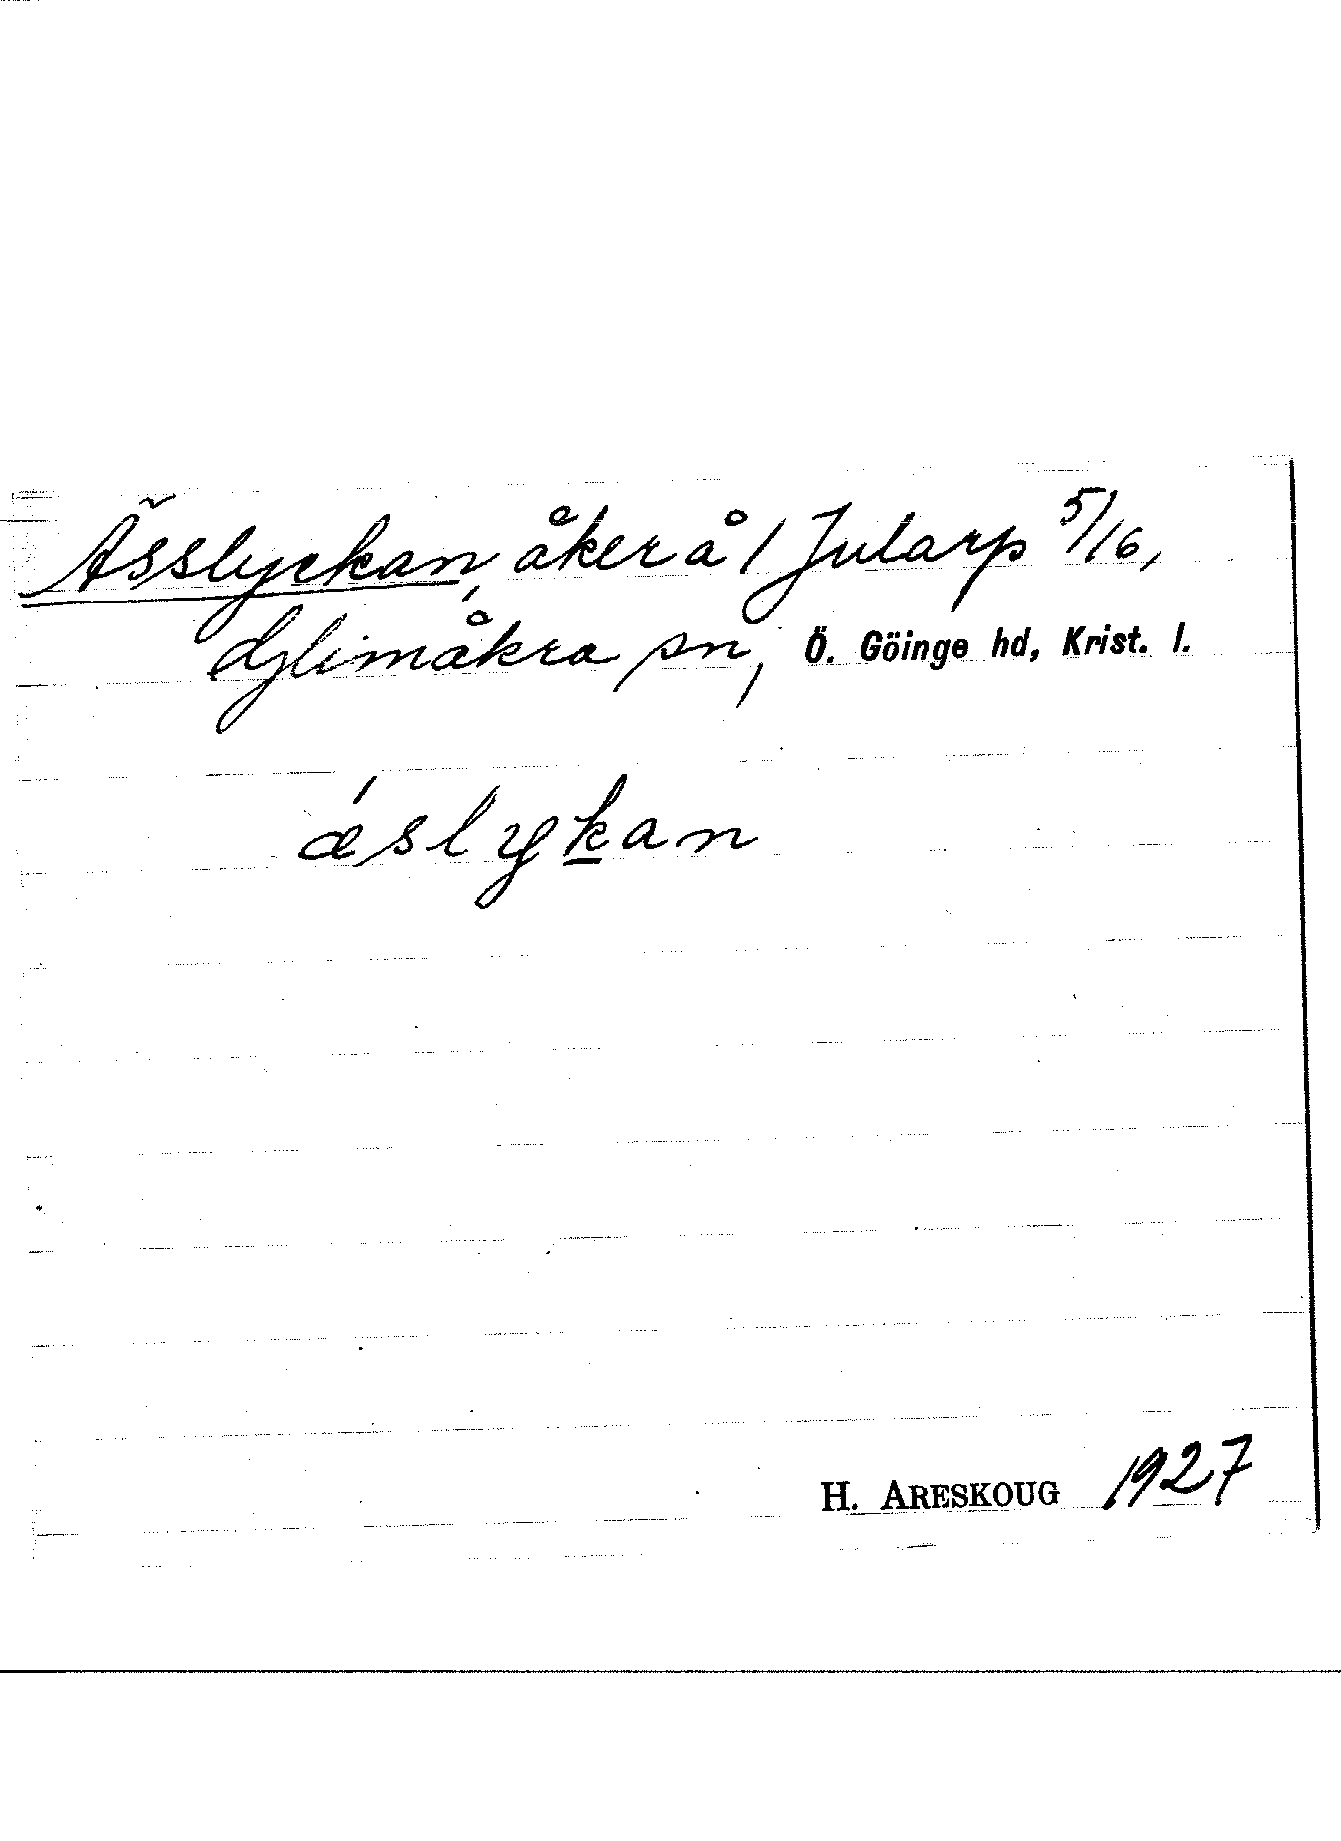 Ässlyckan, åker å 1 Jularp 5/16,
Glimåkra sn, Ö. Göinge hd, Krist. l.
ǽslykan
H. ARESKOUG 1927